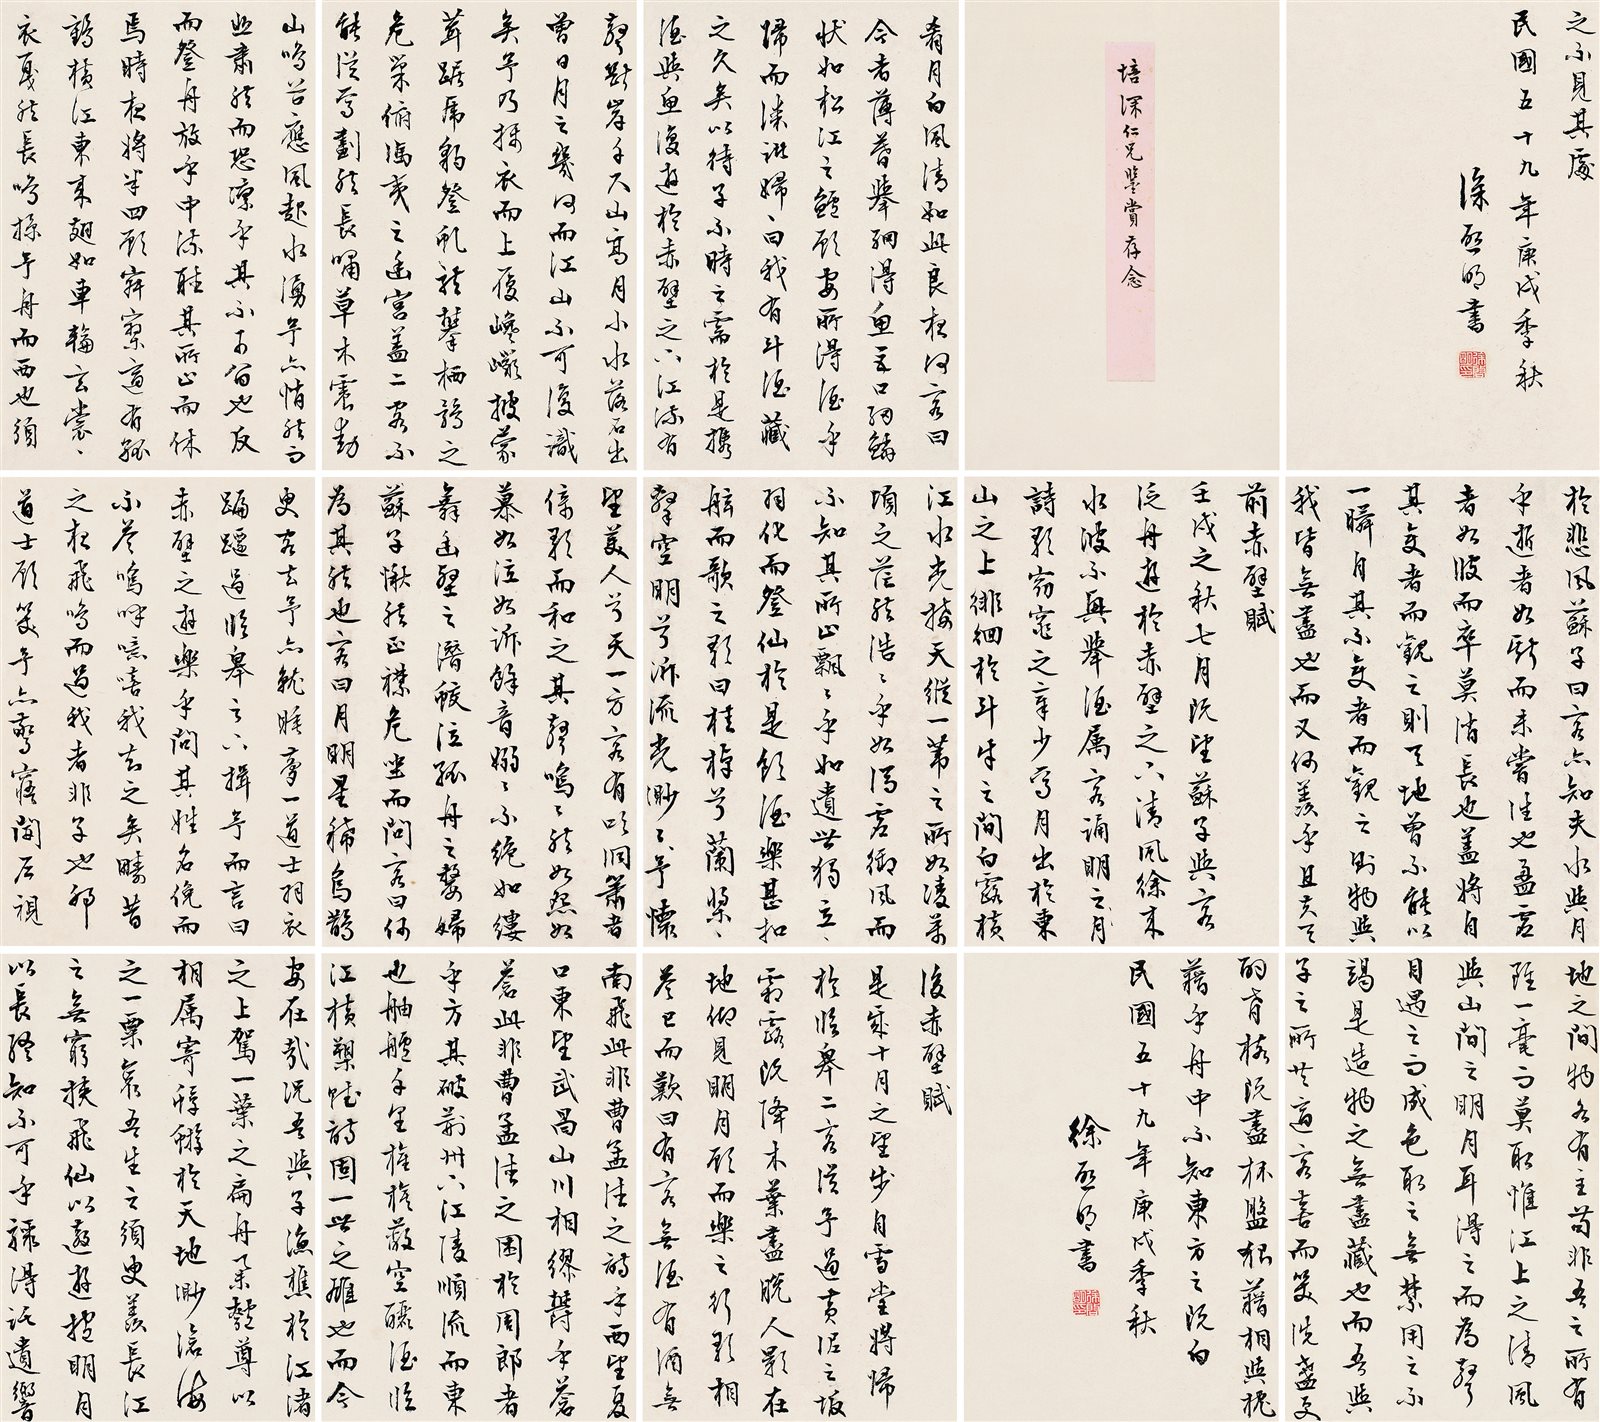 培深仁兄鑒賞存念
前赤壁賦
壬戌之秋七月既望蘇子與客
泛舟遊於赤壁之下清風徐來
水波不興舉酒屬客誦明月之
詩歌窈窕之章少焉月出於東
山之上徘徊於斗牛之間白露橫
江水光接天縱一葦之所如凌萬
頃之茫然浩浩乎如馮虛御風而
不知其所止飄飄乎如遺世獨立
羽化而登仙於是飲酒樂甚扣
舷而歌之歌曰桂棹兮蘭槳
擊空明兮泝流光渺渺予懷
望美人兮天一方客有吹洞簫者
倚歌而和之其聲嗚嗚然如怨如
慕如泣如訴餘音嫋嫋不絕如縷
舞幽壑之潛蛟泣孤舟之嫠婦
蘇子愀然正襟危坐而問客曰何
為其然也客曰月明星稀烏鵲
南飛此非曹孟德之詩乎西望夏
口東望武昌山川相繆鬱乎蒼
蒼此非曹孟德之困於周郎者
乎方其破荊州下江陵順流而東
也舳艫千里旌旗蔽空釃酒臨
江橫槊賦詩固一世之雄也而今
安在哉況吾與子漁樵於江渚
之上駕一葉之扁舟舉匏尊以
相屬寄蜉蝣於天地渺滄海
之一粟哀吾生之須臾羨長江
之無窮挾飛仙以遨遊抱明月
以長終知不可乎驟得託遺響
於悲風蘇子曰客亦知夫水與月
乎逝者如斯而未嘗往也盈虛
者如彼而卒莫消長也蓋將自
其變者而觀之則天地曾不能以
一瞬自其不變者而觀之則物與
我皆無盡也而又何羨乎且夫天
地之間物各有主苟非吾之所有
雖一毫而莫取惟江上之清風
與山間之明月耳得之而為聲
目遇之而成色取之無禁用之不
竭是造物之無盡藏也而吾與
子之所共適客喜而笑洗盞更
酌肴核既盡杯盤狼藉相與枕
藉乎舟中不知東方之既白
民國五十九年庚戌季秋
徐啟明書
後赤壁賦
是歲十月之望步自雪堂將歸
於臨皋二客從予過黃泥之坂
霜露既降木葉盡脫人影在
地仰見明月顧而樂之行歌相
答已而歎曰有客無酒有酒無
肴月白風清如此良夜何客曰
今者薄暮舉網得魚巨口細鱗
狀如松江之鱸顧安所得酒乎
歸而謀諸婦婦曰我有斗酒藏
之久矣以待子不時之需於是攜
酒與魚復遊於赤壁之下江流有
聲斷岸千尺山高月小水落石出
曾日月之幾何而江山不可復識
矣予乃攝衣而上履巉巖披蒙
茸踞虎豹登虯龍攀栖鶻之
危巢俯馮夷之幽宮蓋二客不
能從焉劃然長嘯草木震動
山鳴谷應風起水湧予亦悄然而
悲肅然而恐凜乎其不可留也反
而登舟放乎中流聽其所止而休
焉時夜將半四顧寂寥適有孤
鶴橫江東來翅如車輪玄裳
衣戛然長鳴掠予舟而西也須
臾客去予亦就睡夢一道士羽衣
蹁躚過臨皋之下揖予而言曰
赤壁之遊樂乎問其姓名俛而
不答嗚呼噫嘻我知之矣疇昔
之夜飛鳴而過我者非子也耶
道士顧笑予亦驚寤開戶視
之不見其處
民國五十九年庚戌季秋
徐啟明書